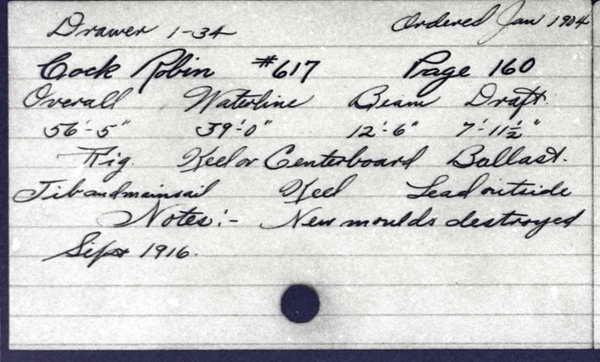 Drawer 1-34 Ordered Jan 1904
Cock Robin #617 Page 160
Overall Waterline Beam Draft.
56'-5" 39'-0" 12'-6" 7'-11½"
Rig Keel or Centerboard Ballast.
Jib and mainsail Keel Lead outside
Notes:- New moulds destroyed
Sept 1916.